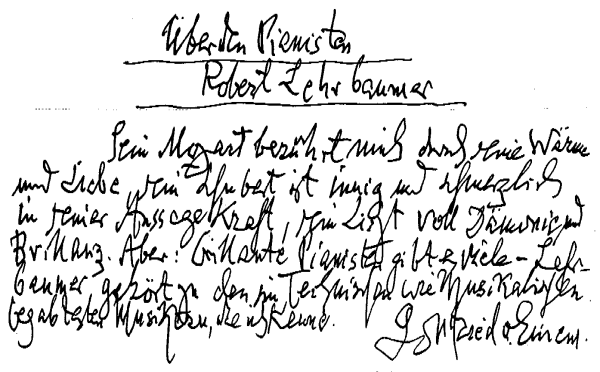 Über den Pianisten
Robert Lehrbaumer
Sein Mozart berührt mich durch seine Wärme
und Liebe, sein Schubert ist innig und schmerzlich
in seiner Aussagekraft, sein Liszt voll Dämonie und
Brillanz. Aber: brillante Pianisten gibt es viele - Lehr-
baumer gehört zu den im Technischen wie Musikalischen
begabtesten Musikern, die ich kenne.
Gottfried v. Einem.